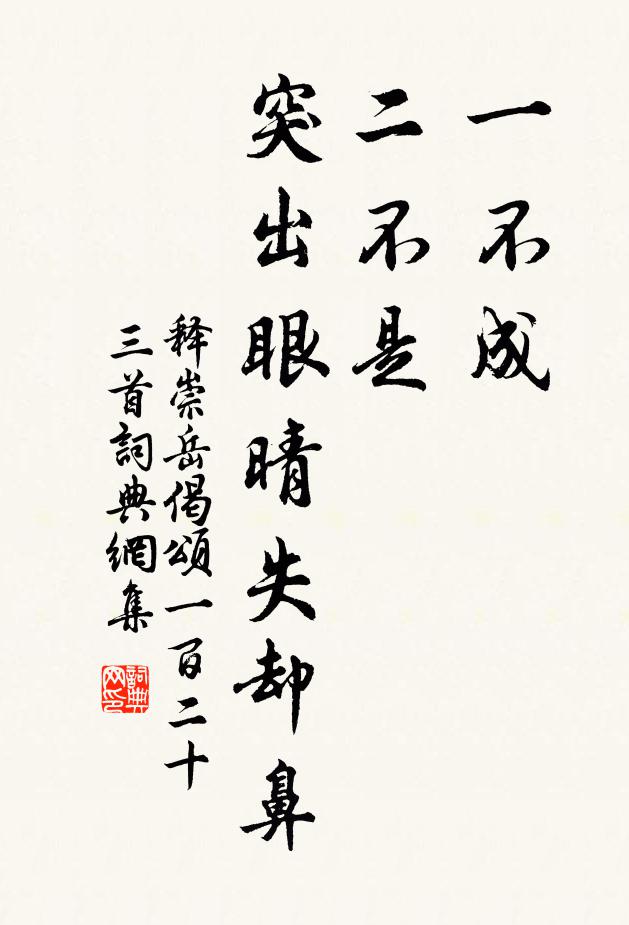 一不成
二不是
突出眼晴失却鼻
释崇岳偈頌一百二十
三首詞典網集
詞典
网印